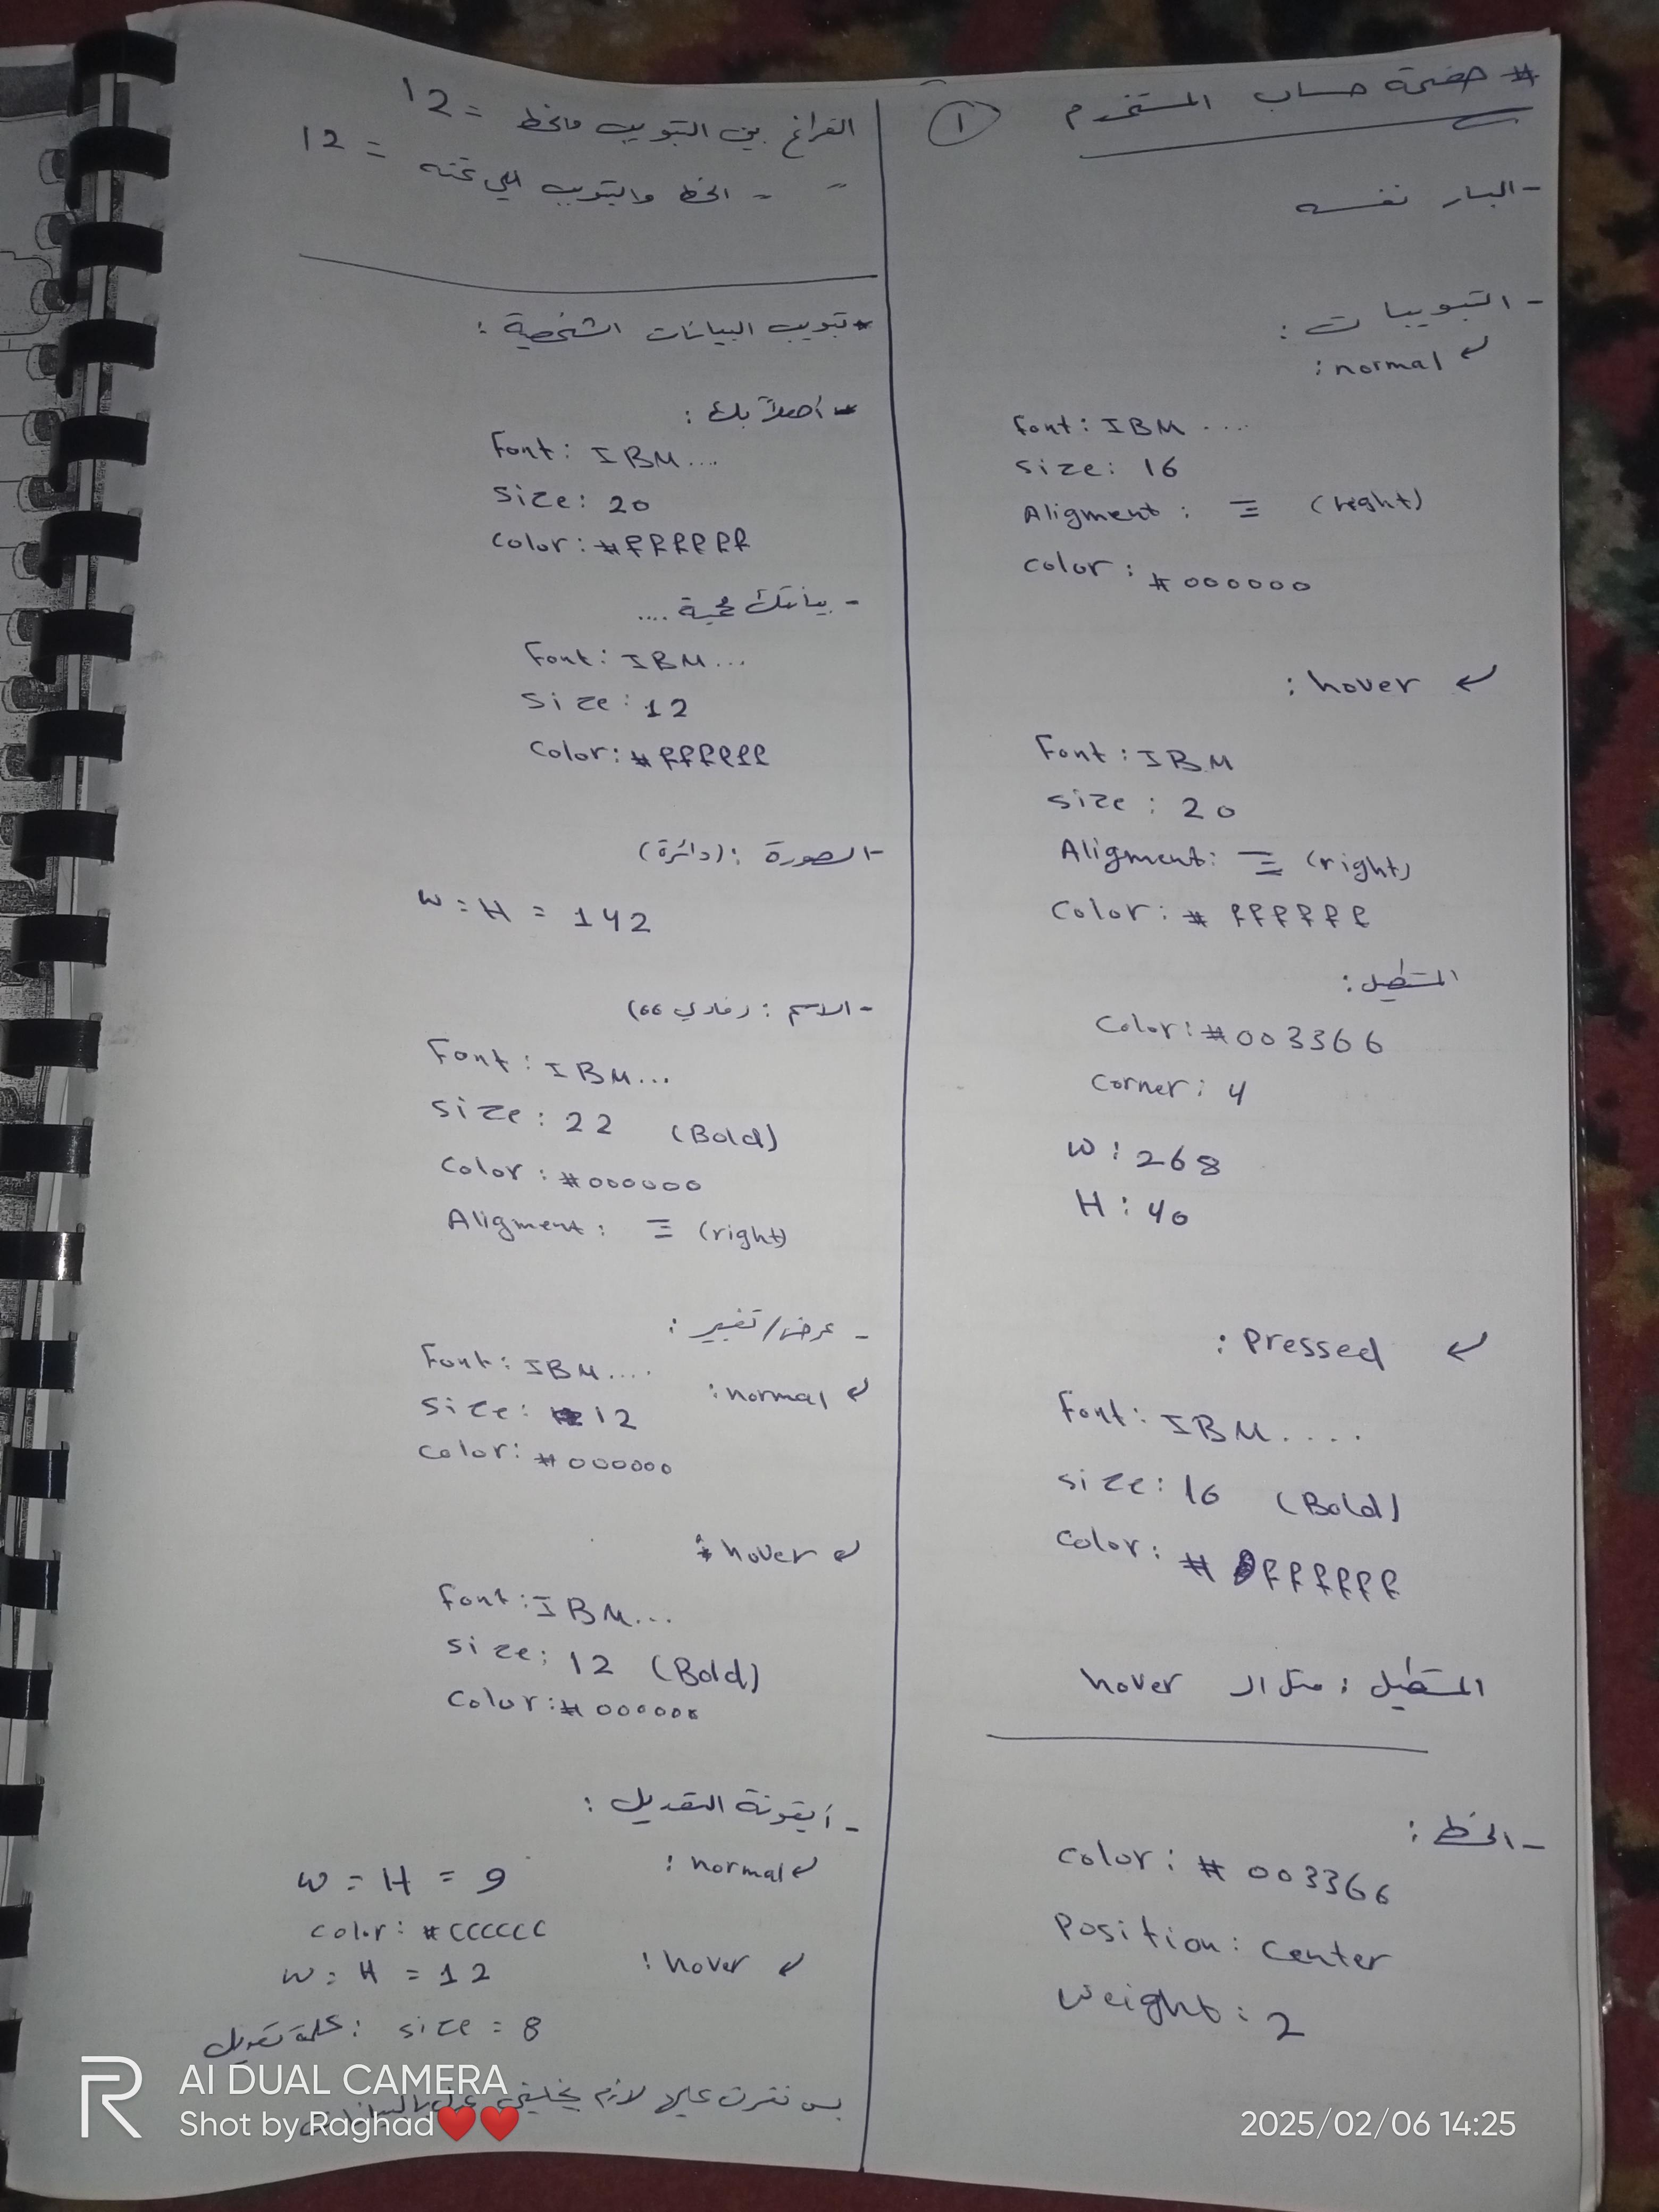 # صفحة حساب المستخدم ①
- البار نفسه
- التبويبات :
↵ normal :
Font: IBM ....
size: 16
Aligment : ≡ (right)
color: #000000
↵ hover :
Font: IBM
size: 20
Aligment: ≡ (right)
color: # ffffff
المستطيل :
color: #003366
corner: 4
w: 268
H: 40
↵ Pressed :
Font: IBM ....
size: 16 (Bold)
color: # ffffff
المستطيل : مثل الـ hover
- الخط :
color: # 003366
Position: center
weight: 2
الفراغ بين التبويب والخط = 12
" " الخط والتبويب اللي تحته = 12
* تبويب البيانات الشخصية :
- أهلاً بك :
Font: IBM....
size: 20
color: #ffffff
- بياناتك محمية ....
Font: IBM...
size: 12
color: #ffffff
- الصورة : (دائرة)
w = H = 142
- الاسم :
Font: IBM...
size: 22 (Bold)
color: #000000
Aligment: ≡ (right)
- عرض/تغيير :
↵ normal :
Font: IBM....
size: 12
color: #000000
↵ hover :
Font: IBM...
size: 12 (Bold)
color: #000000
- أيقونة التعديل :
↵ normal :
w = H = 9
color: #CCCCCC
↵ hover :
w = H = 12
كلمة تعديل : size = 8
بس نقرت عليها لازم يخليني عدل بالبيانات
AI DUAL CAMERA
Shot by Raghad❤️❤️
2025/02/06 14:25